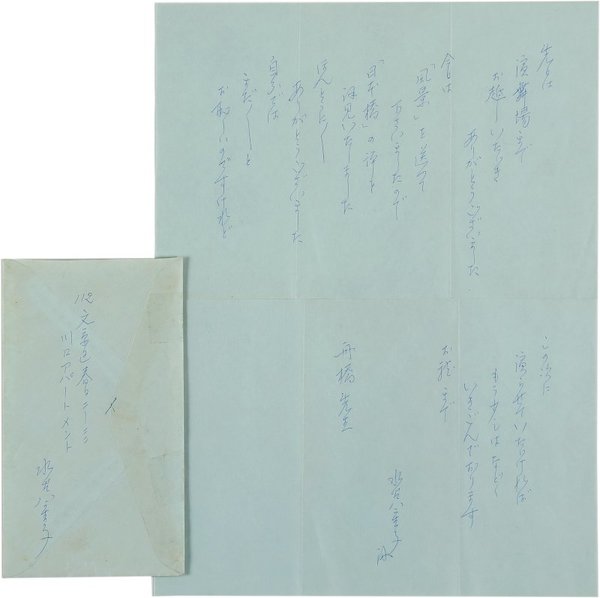 先日は
演舞場まで
お越しいただき
ありがとうございました
今日は
「風景」を送って
下さいましたので
「日本橋」の評を
拝見いたしました
ほんとに
ありがとうございました
自分では
まだ〳〵と
お恥しいのですけれど
この次に
演らせていただければ
もう少しはなどと
いきごんでおります
お礼まで
水谷八重子
舟橋先生
112 文京区春日
川口アパートメント
水谷八重子